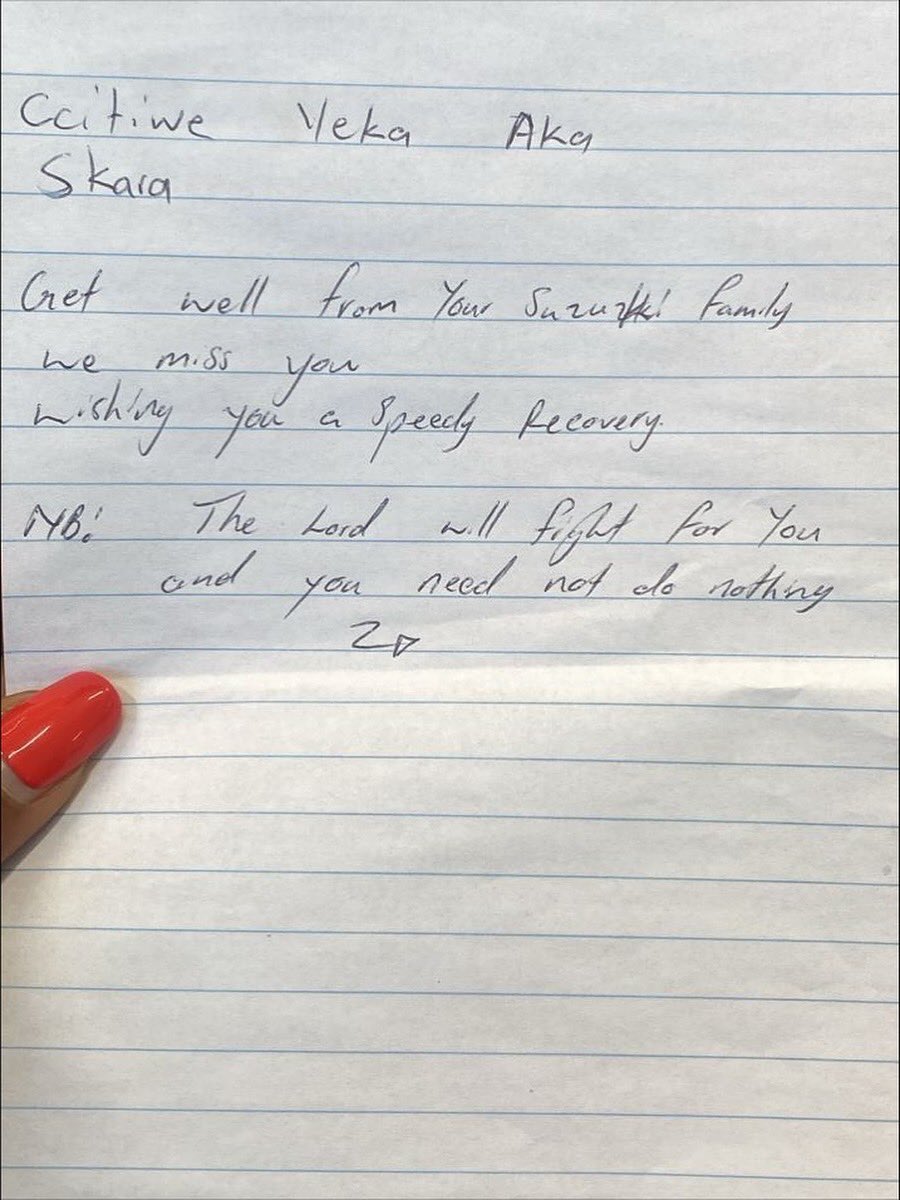 Ccitiwe Yeka Aka
Skara
Get well from Your Suzuki Family
we miss you
wishing you a Speedy Recovery.
NB: The Lord will fight for You
and you need not do nothing